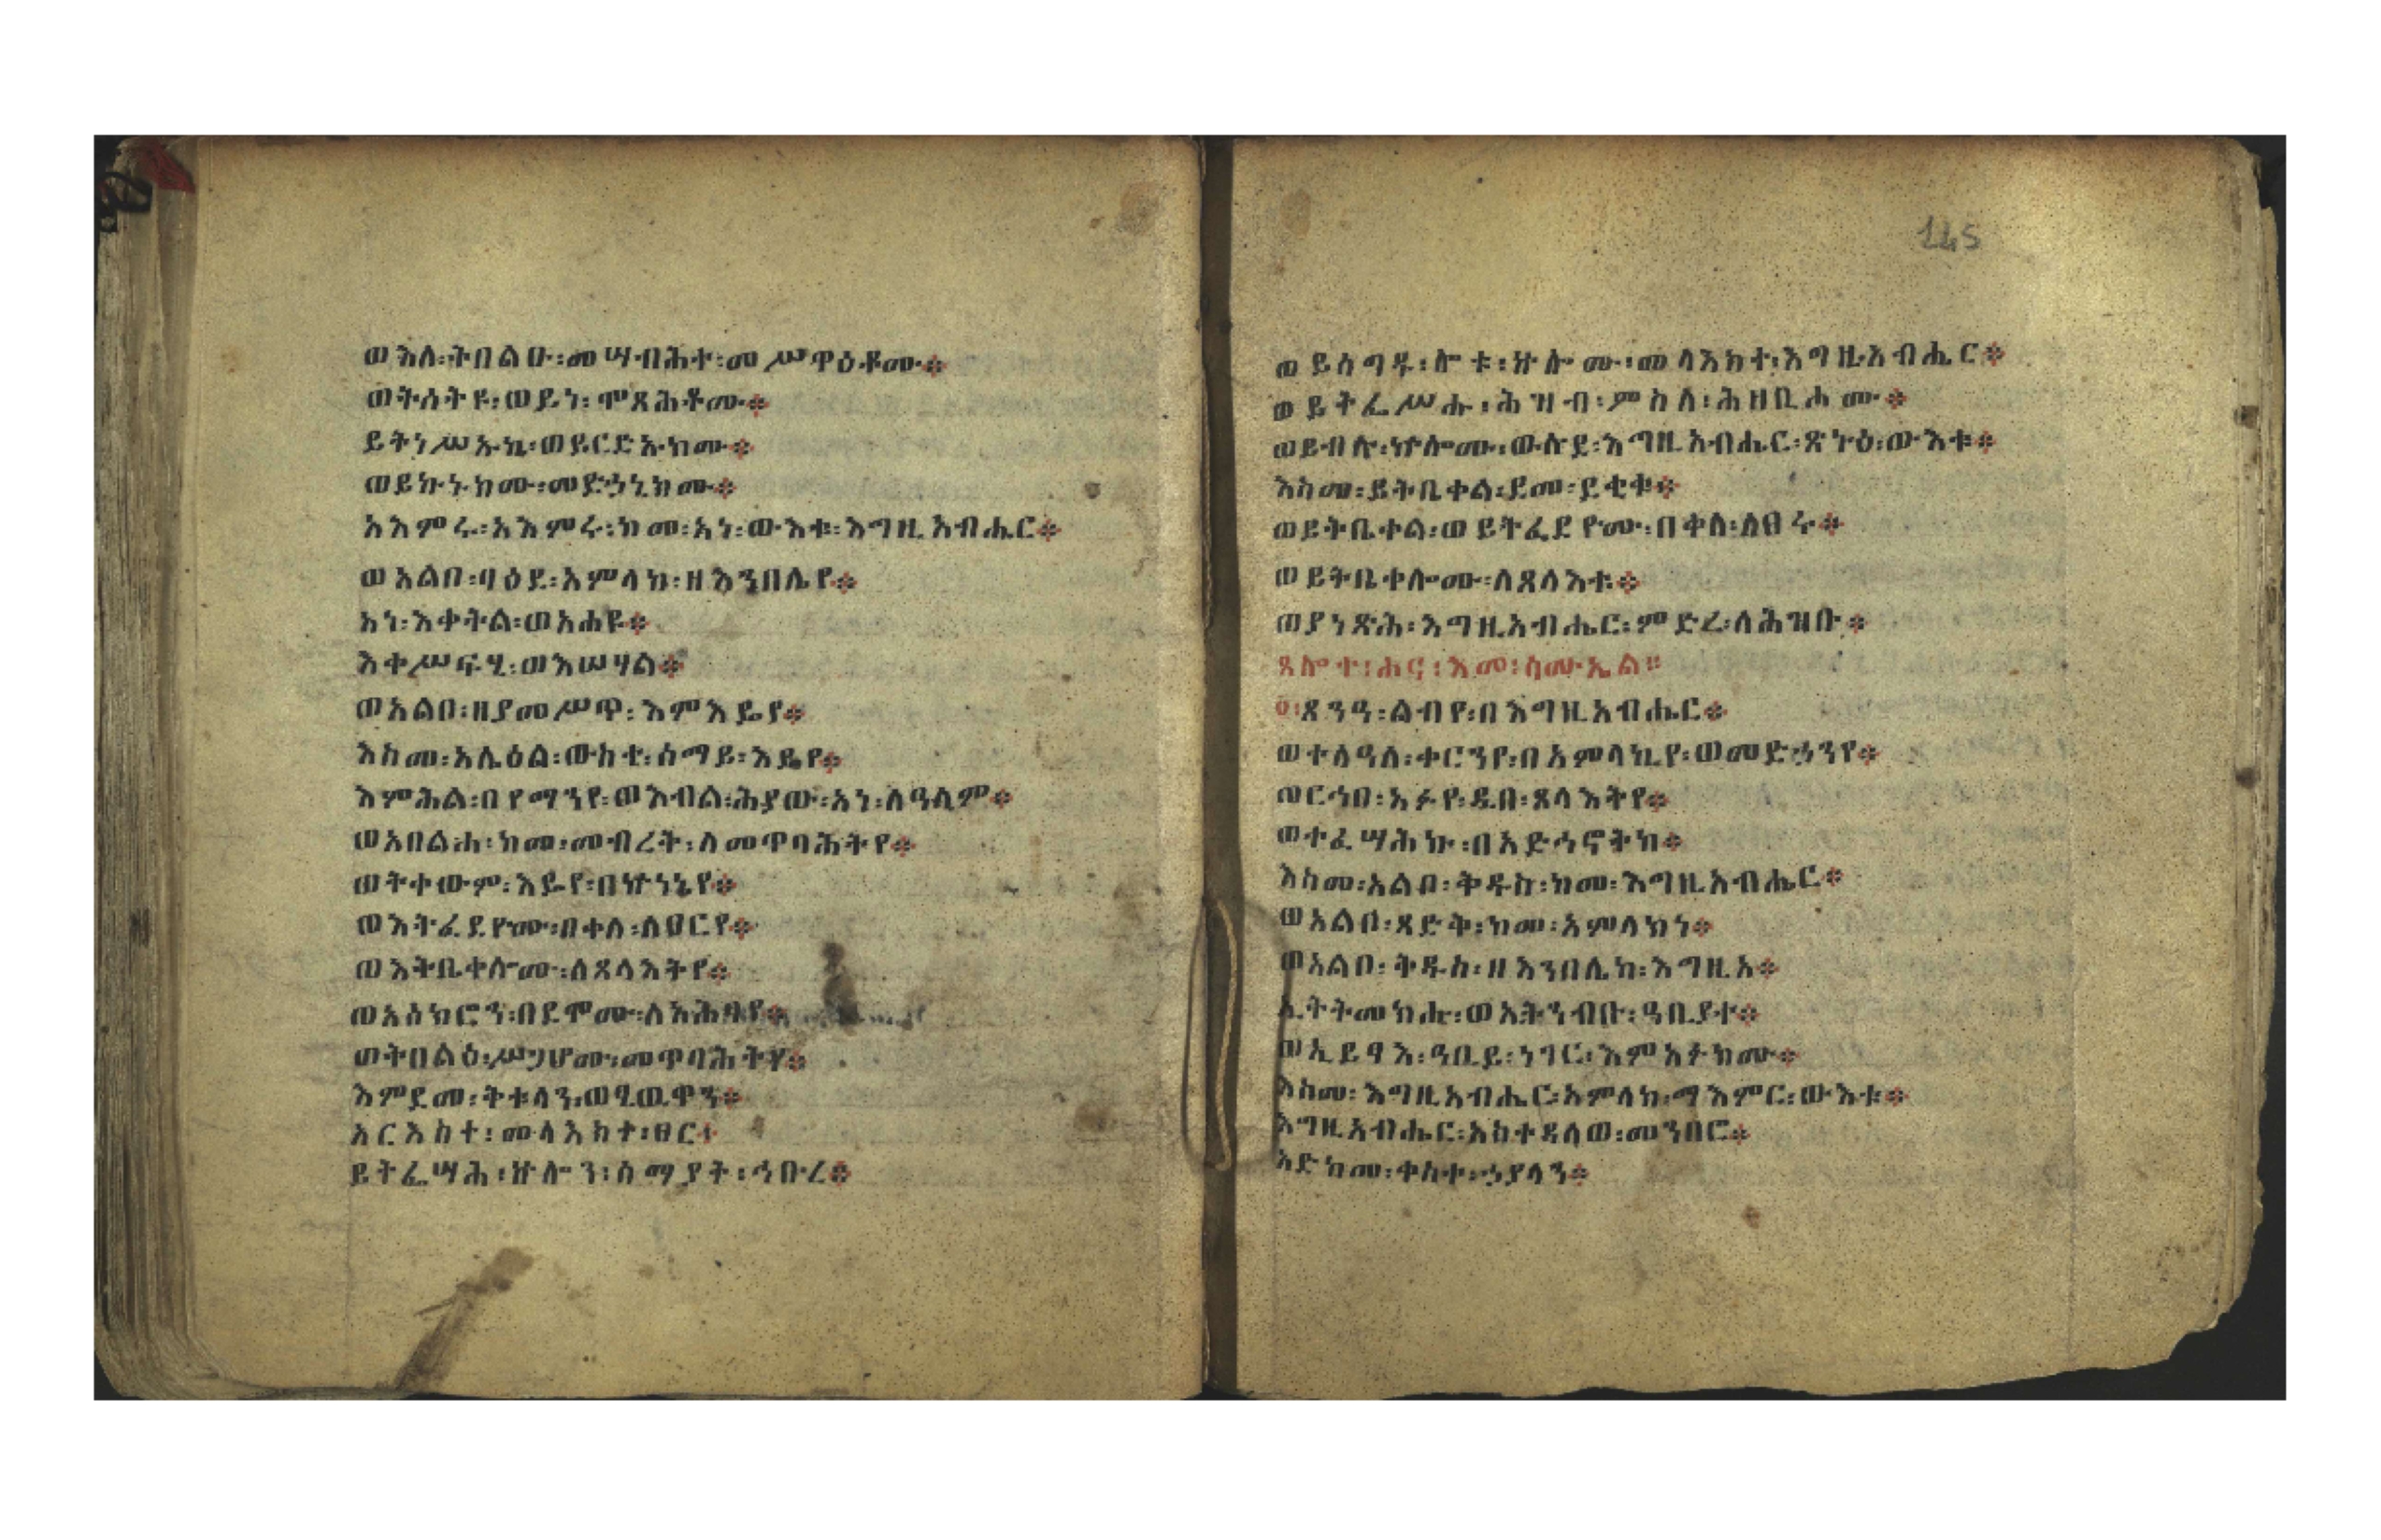 ወእለ፡ትበልዑ፡መሣብሕተ፡መሥዋዕቶሙ፨
ወትሰትዩ፡ወይነ፡ሞጻሕቶሙ፨
ይትነሥኡኒ፡ወይርድኡክሙ፨
ወይኩኑክሙ፡መድኃኒክሙ፨
አእምሩ፡አእምሩ፡ከመ፡አነ፡ውእቱ፡እግዚአብሔር፨
ወአልቦ፡ባዕደ፡አምላክ፡ዘእንበሌየ፨
አነ፡እቀትል፡ወአሐዩ፨
እቀሥፍሂ፡ወእሣሃል፨
ወአልቦ፡ዘያመሥጥ፡እምእዴየ፨
እስመ፡አሌዕል፡ውስተ፡ሰማይ፡እዴየ፨
እምሕል፡በየማንየ፡ወእብል፡ሕያው፡አነ፡ለዓለም፨
ወአበልሖ፡ከመ፡መብረት፡ለመጥባሕትየ፨
ወትቀውም፡እዴየ፡በኵነኔየ፨
ወእትፈደዮሙ፡በቀለ፡ለፀርየ፨
ወእትቤቀሎሙ፡ለጸላእትየ፨
ወአሰክሮን፡በደሞሙ፡ለአሕፃየ፨
ወትበልዕ፡ሥጋሆሙ፡መጥባሕትየ፨
እምደመ፡ቅቱላን፡ወፂዉዋን፨
አርእስተ፡መላእክተ፡ፀር፨
ይትፌሣሕ፡ኵሎን፡ሰማያት፡ኅቡረ፨
145
ወይሰግዱ፡ሎቱ፡ኵሎሙ፡መላእክተ፡እግዚአብሔር፨
ወይትፌሥሑ፡ሕዝብ፡ምስለ፡ሕዘቢሖሙ፨
ወይብሉ፡ኵሎሙ፡ውሉደ፡እግዚአብሔር፡ጽኑዕ፡ውእቱ፨
እስመ፡ይትቤቀል፡ደመ፡ደቂቁ፨
ወይትቤቀል፡ወይትፈደዮሙ፡በቀለ፡ለፀሩ፨
ወይትቤቀሎሙ፡ለጸላእቱ፨
ወያነጽሕ፡እግዚአብሔር፡ምድረ፡ለሕዝቡ፨
ጸሎተ፡ሐና፡እመ፡ሳሙኤል፨
፡ጸንዓ፡ልብየ፡በእግዚአብሔር፨
ወተለዓለ፡ቀርንየ፡በአምላኪየ፡ወመድኃንየ፨
ወርኅበ፡አፉየ፡ዲበ፡ጸላእትየ፨
ወተፈሣሕኩ፡በአድኅኖትከ፨
እስመ፡አልቦ፡ቅዱስ፡ከመ፡እግዚአብሔር፨
ወአልቦ፡ጻድቅ፡ከመ፡አምላክነ፨
ወአልቦ፡ቅዱስ፡ዘእንበሌከ፡እግዚአ፨
ኢትትመክሑ፡ወኢትንብቡ፡ዓቢያተ፨
ወኢይፃእ፡ዓቢይ፡ነገር፡እምአፉክሙ፨
እስመ፡እግዚአብሔር፡አምላክ፡ማእምር፡ውእቱ፨
እግዚአብሔር፡አስተዳለወ፡መንበሮ፨
አድከመ፡ቀስተ፡ኃያላን፨